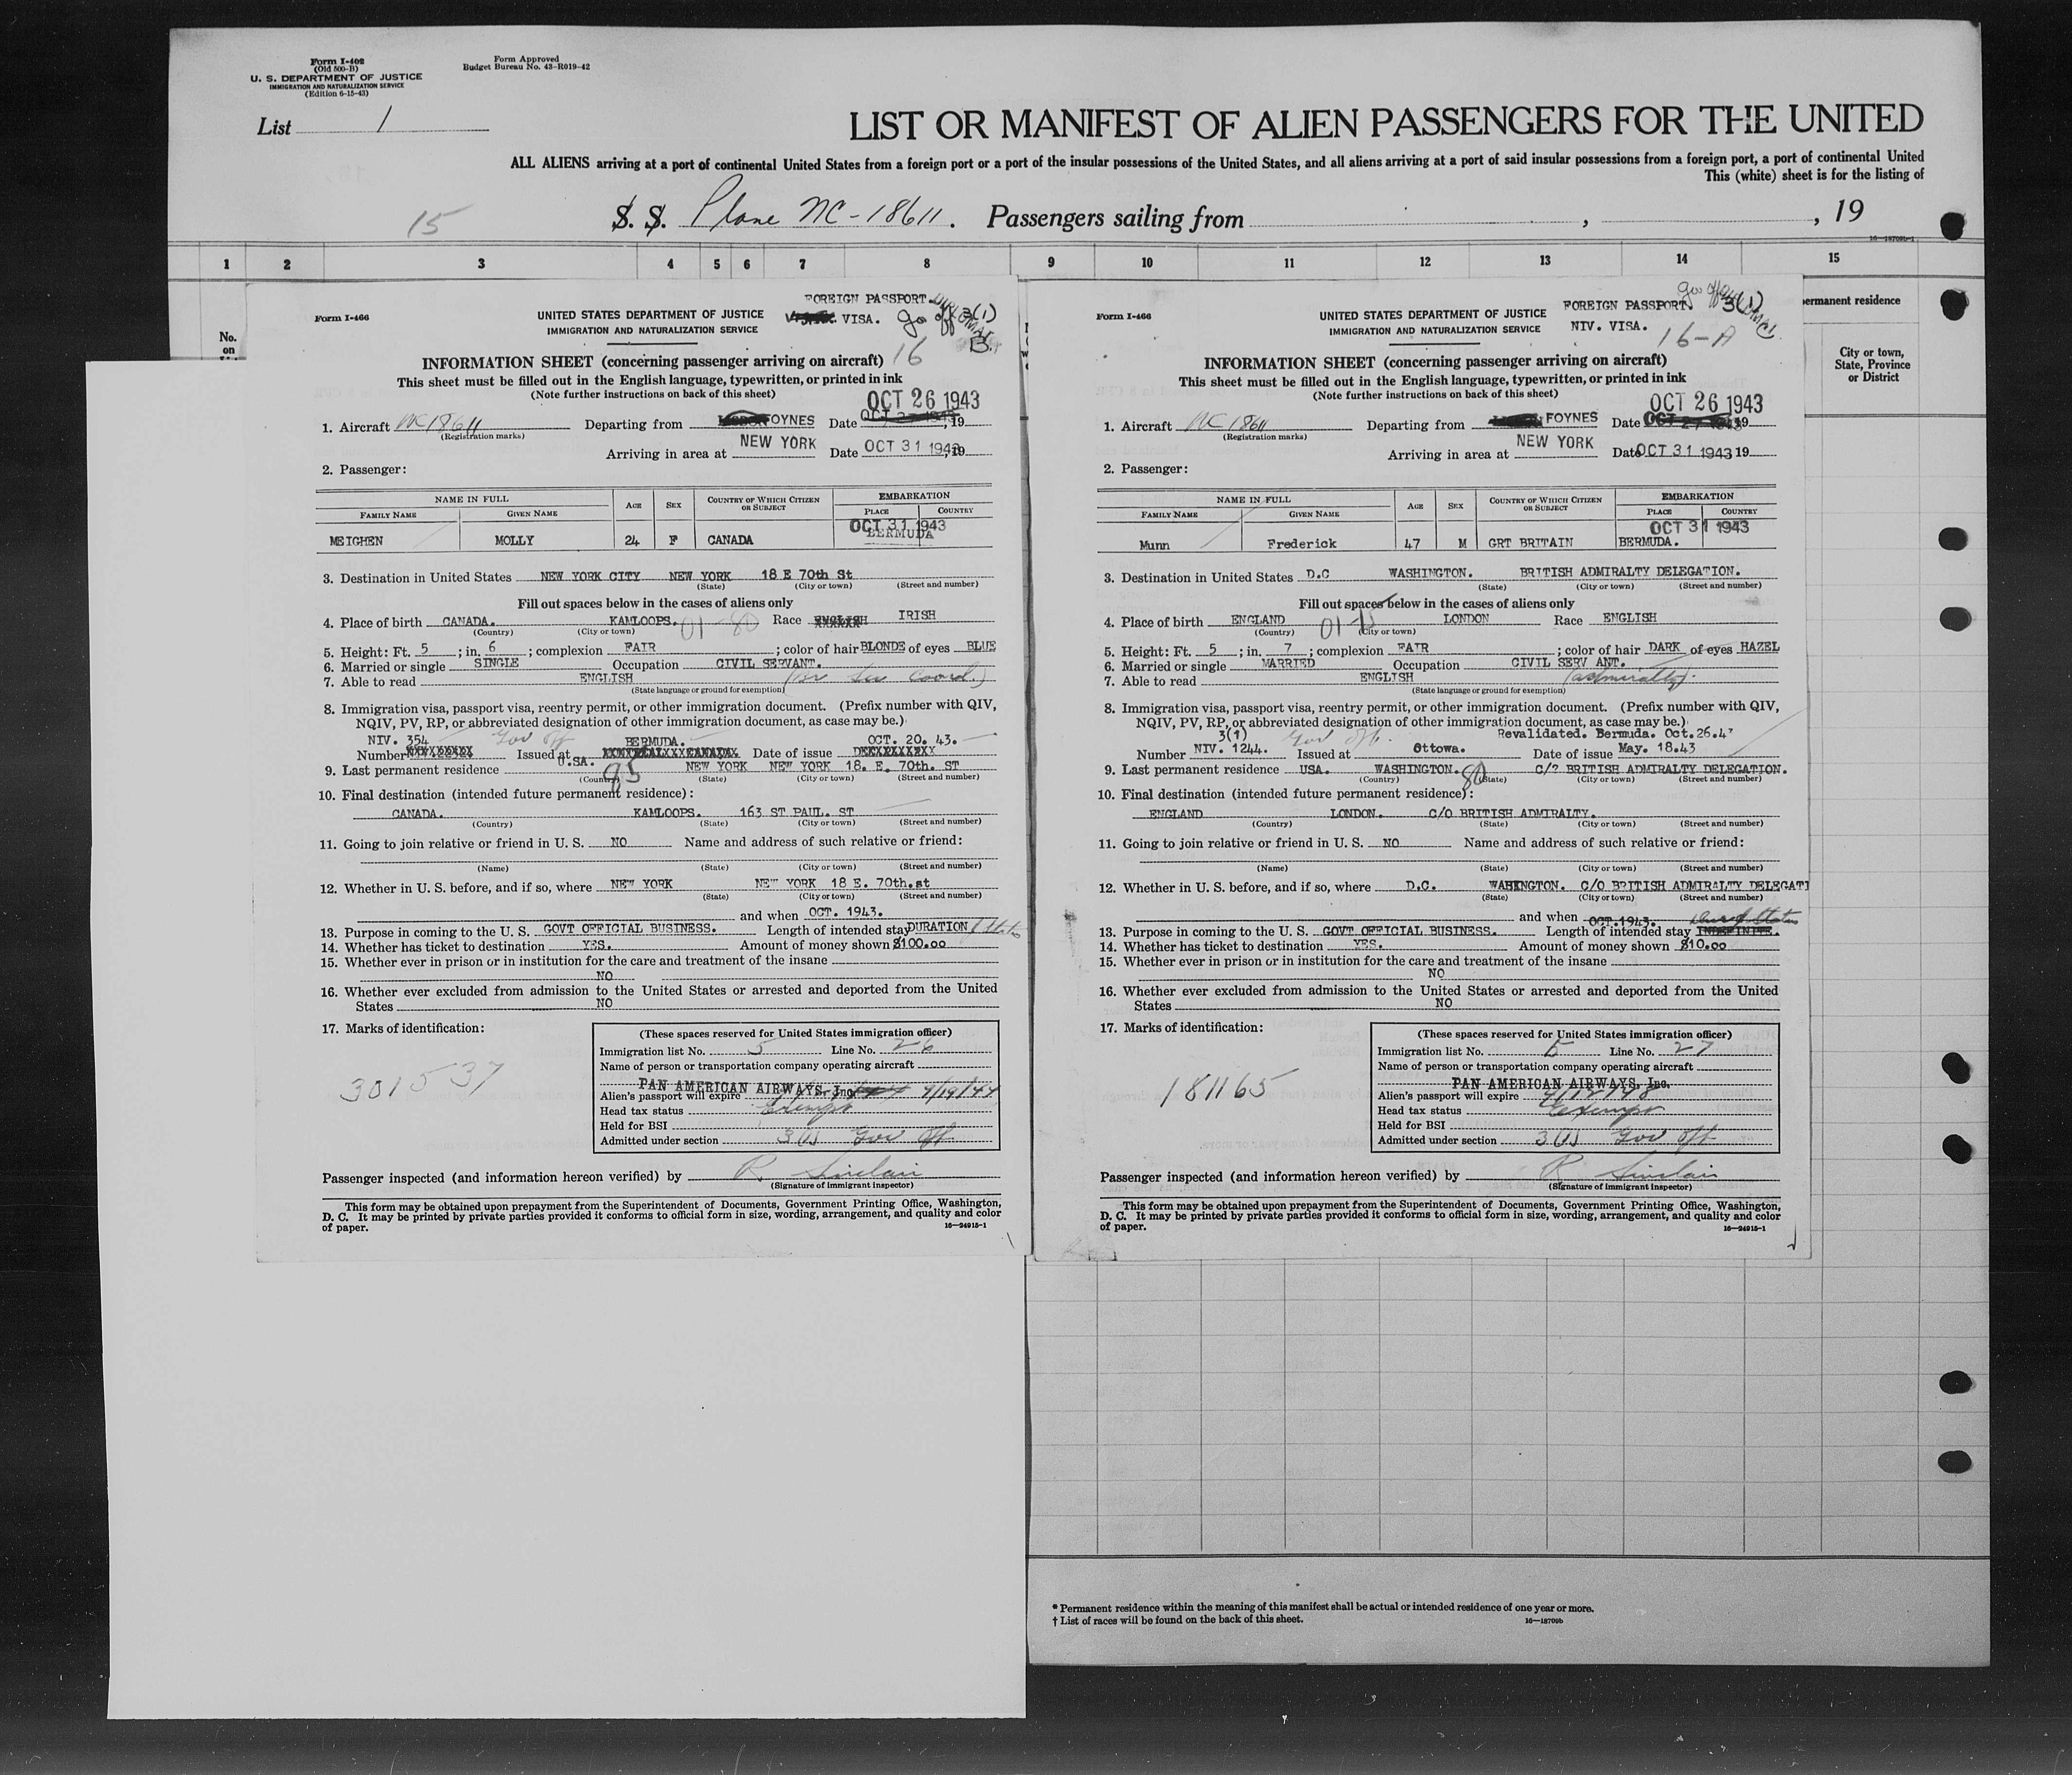 Form I-402
(Old 500-B)
U. S. DEPARTMENT OF JUSTICE
IMMIGRATION AND NATURALIZATION SERVICE
(Edition 6-15-43)
Form Approved
Budget Bureau No. 43-R019-42
List 1
LIST OR MANIFEST OF ALIEN PASSENGERS FOR THE UNITED
ALL ALIENS arriving at a port of continental United States from a foreign port or a port of the insular possessions of the United States, and all aliens arriving at a port of said insular possessions from a foreign port, a port of continental United
This (white) sheet is for the listing of
15
S. S. Plane NC-18611. Passengers sailing from , , 19
1 2 3 4 5 6 7 8 9 10 11 12 13 14 15
No.
on
permanent residence
City or town,
State, Province
or District
FOREIGN PASSPORT.
VISA.
3(1)
B.
Form I-466
UNITED STATES DEPARTMENT OF JUSTICE
IMMIGRATION AND NATURALIZATION SERVICE
16
INFORMATION SHEET (concerning passenger arriving on aircraft)
This sheet must be filled out in the English language, typewritten, or printed in ink
(Note further instructions on back of this sheet)
OCT 26 1943
1. Aircraft NC18611 Departing from FOYNES Date , 19
(Registration marks)
Arriving in area at NEW YORK Date OCT 31 1943, 19
2. Passenger:
NAME IN FULL AGE SEX COUNTRY OF WHICH CITIZEN OR SUBJECT EMBARKATION
FAMILY NAME GIVEN NAME PLACE COUNTRY
OCT 31 1943
MEIGHEN MOLLY 24 F CANADA BERMUDA
3. Destination in United States NEW YORK CITY NEW YORK 18 E 70th St
(State) (City or town) (Street and number)
Fill out spaces below in the cases of aliens only
4. Place of birth CANADA. KAMLOOPS. 01-80 Race ENGLISH IRISH
(Country) (City or town)
5. Height: Ft. 5 ; in. 6 ; complexion FAIR ; color of hair BLONDE of eyes BLUE
6. Married or single SINGLE Occupation CIVIL SERVANT.
7. Able to read ENGLISH (Br Sec Coord.)
(State language or ground for exemption)
8. Immigration visa, passport visa, reentry permit, or other immigration document. (Prefix number with QIV,
NQIV, PV, RP, or abbreviated designation of other immigration document, as case may be.)
NIV. 354 Gov off BERMUDA. OCT. 20. 43.
Number Issued at Date of issue
9. Last permanent residence U.SA. 95 NEW YORK NEW YORK 18. E. 70th. ST
(Country) (State) (City or town) (Street and number)
10. Final destination (intended future permanent residence):
CANADA. KAMLOOPS. 163 ST PAUL. ST
(Country) (State) (City or town) (Street and number)
11. Going to join relative or friend in U. S. NO Name and address of such relative or friend:
(Name) (State) (City or town) (Street and number)
12. Whether in U. S. before, and if so, where NEW YORK NEW YORK 18 E. 70th.st
(State) (City or town) (Street and number)
and when OCT. 1943.
13. Purpose in coming to the U. S. GOVT OFFICIAL BUSINESS. Length of intended stay DURATION
14. Whether has ticket to destination YES. Amount of money shown $100.00
15. Whether ever in prison or in institution for the care and treatment of the insane
NO
16. Whether ever excluded from admission to the United States or arrested and deported from the United
States NO
17. Marks of identification:
301537
(These spaces reserved for United States immigration officer)
Immigration list No. 5 Line No. 26
Name of person or transportation company operating aircraft
PAN AMERICAN AIRWAYS, Inc.
Alien's passport will expire 4/19/44
Head tax status Exempt
Held for BSI
Admitted under section 3(1) Gov off
Passenger inspected (and information hereon verified) by R. Sinclair
(Signature of immigrant inspector)
This form may be obtained upon prepayment from the Superintendent of Documents, Government Printing Office, Washington,
D. C. It may be printed by private parties provided it conforms to official form in size, wording, arrangement, and quality and color
of paper.
16—24915-1
FOREIGN PASSPORT.
NIV. VISA.
3(1)
C.
Form I-466
UNITED STATES DEPARTMENT OF JUSTICE
IMMIGRATION AND NATURALIZATION SERVICE
16-A
INFORMATION SHEET (concerning passenger arriving on aircraft)
This sheet must be filled out in the English language, typewritten, or printed in ink
(Note further instructions on back of this sheet)
OCT 26 1943
1. Aircraft NC 18611 Departing from FOYNES Date 19
(Registration marks)
Arriving in area at NEW YORK Date OCT 31 1943 19
2. Passenger:
NAME IN FULL AGE SEX COUNTRY OF WHICH CITIZEN OR SUBJECT EMBARKATION
FAMILY NAME GIVEN NAME PLACE COUNTRY
OCT 31 1943
Munn Frederick 47 M GRT BRITAIN BERMUDA.
3. Destination in United States D.C WASHINGTON. BRITISH ADMIRALTY DELEGATION.
(State) (City or town) (Street and number)
Fill out spaces below in the cases of aliens only
4. Place of birth ENGLAND LONDON Race ENGLISH
(Country) (City or town)
5. Height: Ft. 5 ; in. 7 ; complexion FAIR ; color of hair DARK of eyes HAZEL
6. Married or single MARRIED Occupation CIVIL SERV ANT.
7. Able to read ENGLISH (admiralty).
(State language or ground for exemption)
8. Immigration visa, passport visa, reentry permit, or other immigration document. (Prefix number with QIV,
NQIV, PV, RP, or abbreviated designation of other immigration document, as case may be.)
3(1) Gov off. Revalidated. Bermuda. Oct.26.4
Number NIV. 1244. Issued at Ottowa. Date of issue May. 18.43
9. Last permanent residence USA. WASHINGTON. 80 C/? BRITISH ADMIRALTY DELEGATION.
(Country) (State) (City or town) (Street and number)
10. Final destination (intended future permanent residence):
ENGLAND LONDON. C/O BRITISH ADMIRALTY.
(Country) (State) (City or town) (Street and number)
11. Going to join relative or friend in U. S. NO Name and address of such relative or friend:
(Name) (State) (City or town) (Street and number)
12. Whether in U. S. before, and if so, where D.C. WASHINGTON. C/O BRITISH ADMIRALTY DELEGATI
(State) (City or town) (Street and number)
and when OCT.1943.
13. Purpose in coming to the U. S. GOVT OFFICIAL BUSINESS. Length of intended stay INDEFINITE.
14. Whether has ticket to destination YES. Amount of money shown $10.00
15. Whether ever in prison or in institution for the care and treatment of the insane
NO
16. Whether ever excluded from admission to the United States or arrested and deported from the United
States NO
17. Marks of identification:
181165
(These spaces reserved for United States immigration officer)
Immigration list No. 5 Line No. 27
Name of person or transportation company operating aircraft
PAN AMERICAN AIRWAYS, Inc.
Alien's passport will expire 4/12/48
Head tax status Exempt
Held for BSI
Admitted under section 3(1) Gov off
Passenger inspected (and information hereon verified) by R. Sinclair
(Signature of immigrant inspector)
This form may be obtained upon prepayment from the Superintendent of Documents, Government Printing Office, Washington,
D. C. It may be printed by private parties provided it conforms to official form in size, wording, arrangement, and quality and color
of paper.
16—24915-1
* Permanent residence within the meaning of this manifest shall be actual or intended residence of one year or more.
† List of races will be found on the back of this sheet.
16—18709b